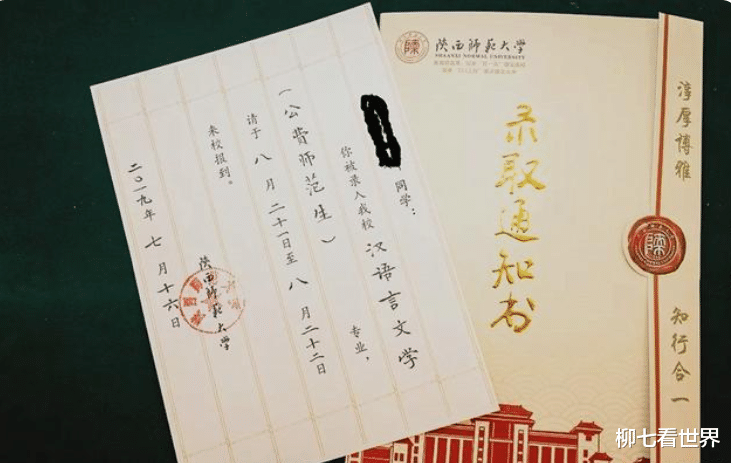 同学：
你被录入我校 汉语言文学 专业，
（公费师范生）
请于 八 月 二十一日至 八 月 二十二日
来校报到。
陕西师范大学
二〇一九年 七 月 十六 日
陕西师范大学
SHAANXI NORMAL UNIVERSITY
录取通知书
淳厚博雅
知行合一
柳七看世界